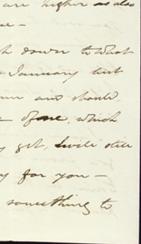 are higher as also
me -
down to what
January but
and should
- of one, which
get, but still
for you -
something to